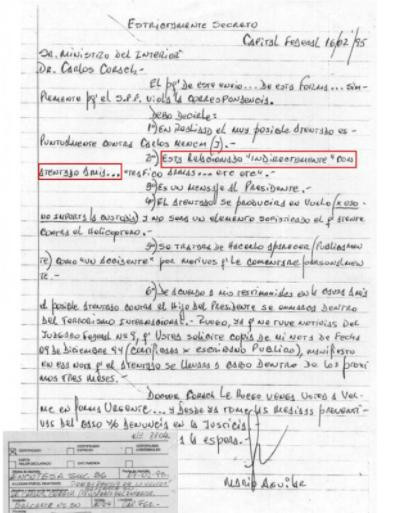 Estrictamente Secreto
Capital Federal 16/02/95
Sr. Ministro del Interior
Dr. Carlos Corach.-
El pq' de este envio... De esta forma... sim-
plemente pq' el S.P.F. viola la correspondencia.
Debo decirle:
1º) En realidad el muy posible atentado es -
puntualmente contra Carlos Menem (J).-
2º) Esta relacionado "indirectamente" con
atentado Amia... "Trafico armas... etc etc".-
3º) Es un mensaje al Presidente.-
4º) El atentado se producira en vuelo (x eso
no importa la custodia) y no sera un elemento sofisticado el q' atente
contra el helicoptero.-
5º) Se tratara de hacerlo aparecer (publicamen
te) como "un accidente" por motivos q' le comentare personalmen
te.-
6º) De acuerdo a mis testimonios en la causa Amia
el posible atentado contra el Hijo del Presidente se enmarca dentro
del Terrorismo Internacional.- Ruego, ya q' no tuve noticias del
Juzgado Federal Nº 9, q' Ustes solicite copia de mi nota de fecha
09 de Diciembre 94 (certificada x escribano publico), manifiesto
en esa nota q' el atentado se llevara a cabo dentro de los proxi
mos tres meses.-
Doctor Corach le ruego venga Usted a ver-
me en forma urgente... y desde ya tome las medidas preventi-
vas del caso y/o denuncia en la Justicia
a la espera.-
Mario Aguilar
CERTIFICADO
ENCOTESA SUC. 86
DR CARLOS CORACH
BALCARCE Nº 50
CAP FED.-